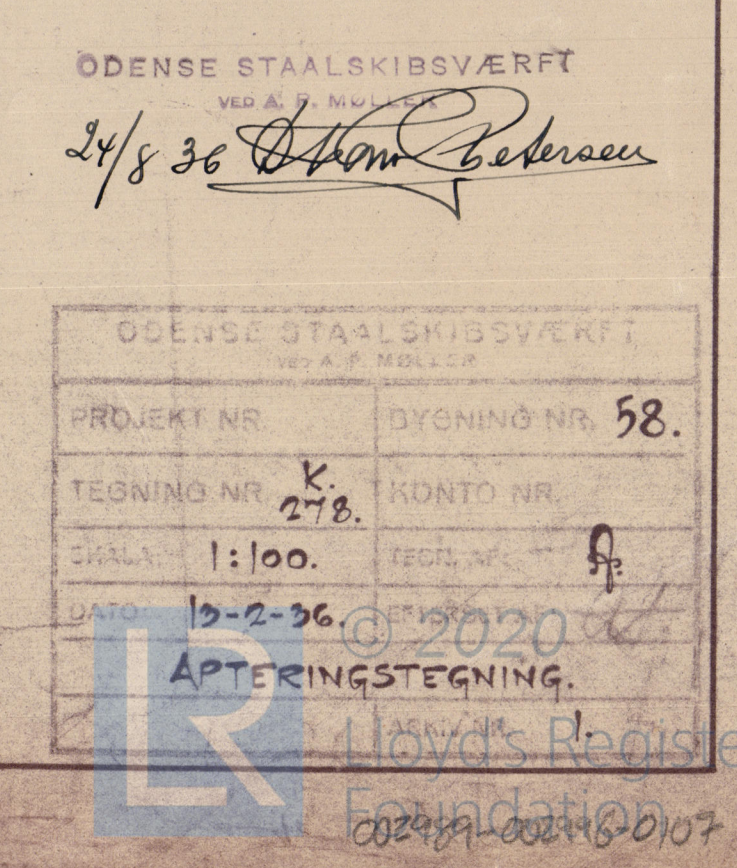 ODENSE STAALSKIBSVÆRFT
VED A. P. MØLLER
24/8 36 Petersen
ODENSE STAALSKIBSVÆRFT
VED A. P. MØLLER
PROJEKT NR. BYGNING NR. 58.
TEGNING NR. K. 278. KONTO NR.
SKALA: 1:100. TEGN. AF: A.
DATO: 13-2-36.
© 2020
APTERINGSTEGNING.
LR
ARKIV NR. 1.
Lloyd's Registe
Foundation
002989-002996-0107